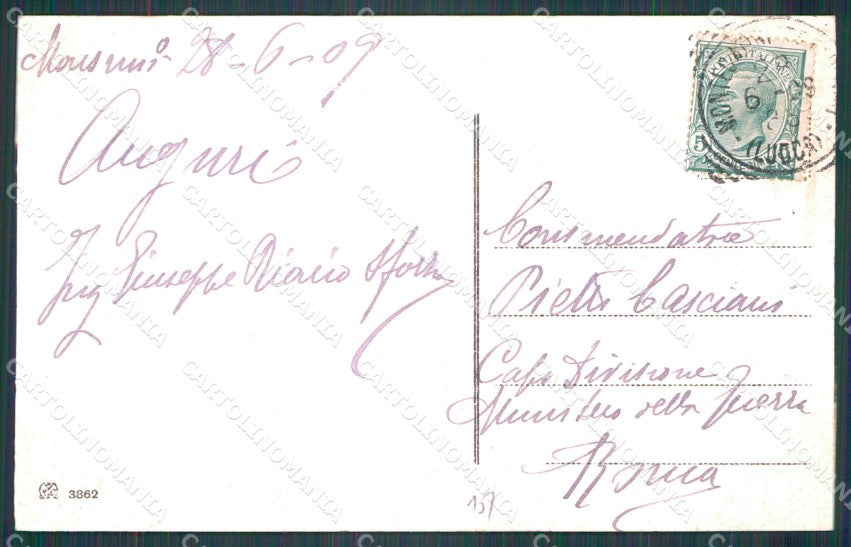 Monsumº 28-6-09
Auguri
Ing Giuseppe Riario Sforza
Commendatore
Pietro Casciani
Capo Divisione
Ministero della Guerra
Roma
5
(LUCCA)
3862
137
CARTOLINOMANIA